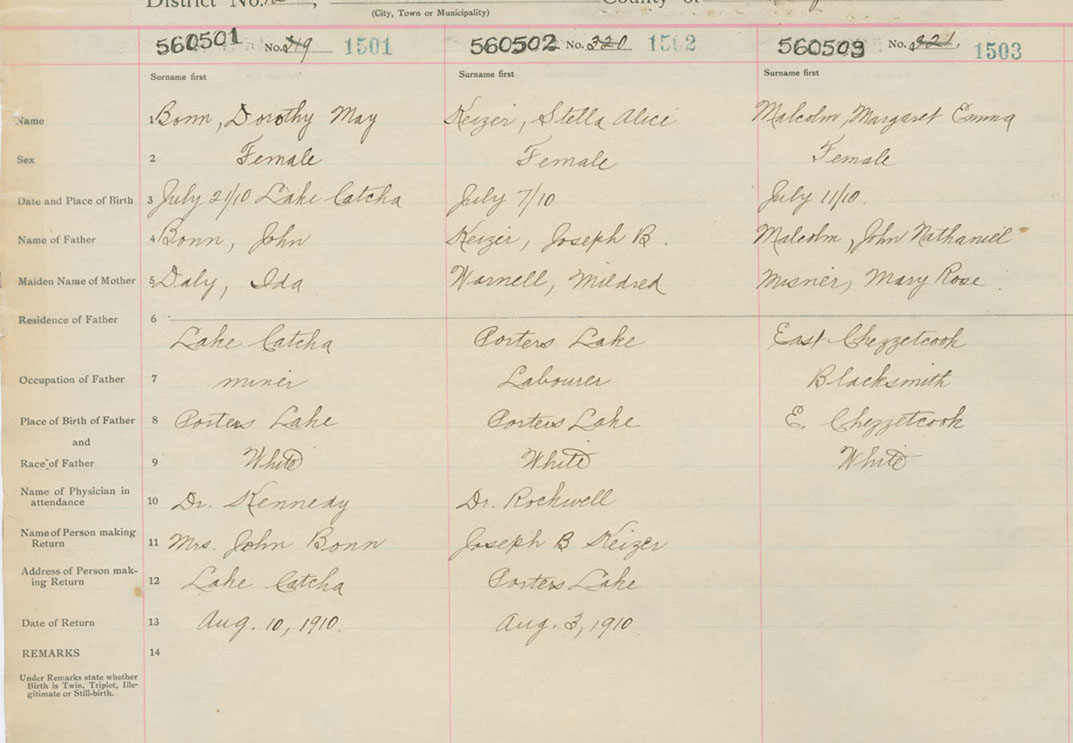 District No.
County of
(City, Town or Municipality)
560501 No. 319 1501
560502 No. 320 1502
560503 No. 321. 1503
Surname first
Surname first
Surname first
Name 1 Bonn, Dorothy May
Keizer, Stella Alice
Malcolm, Margaret Emma
Sex 2 Female
Female
Female
Date and Place of Birth 3 July 21/10 Lake Catcha
July 7/10
July 11/10.
Name of Father 4 Bonn, John
Keizer, Joseph B.
Malcolm, John Nathaniel
Maiden Name of Mother 5 Daly, Ida
Warnell, Mildred
Misner, Mary Rose
Residence of Father 6
Lake Catcha
Porters Lake
East Chezzetcook
Occupation of Father 7 miner
Labourer
Blacksmith
Place of Birth of Father 8 Porters Lake
Porters Lake
E. Chezzetcook
and
Race of Father 9 White
White
White
Name of Physician in
attendance 10 Dr. Kennedy
Dr. Rockwell
Name of Person making
Return 11 Mrs. John Bonn
Joseph B Keizer
Address of Person mak-
ing Return 12 Lake Catcha
Porters Lake
Date of Return 13 Aug. 10, 1910.
Aug. 3, 1910
REMARKS 14
Under Remarks state whether
Birth is Twin, Triplet, Ille-
gitimate or Still-birth.